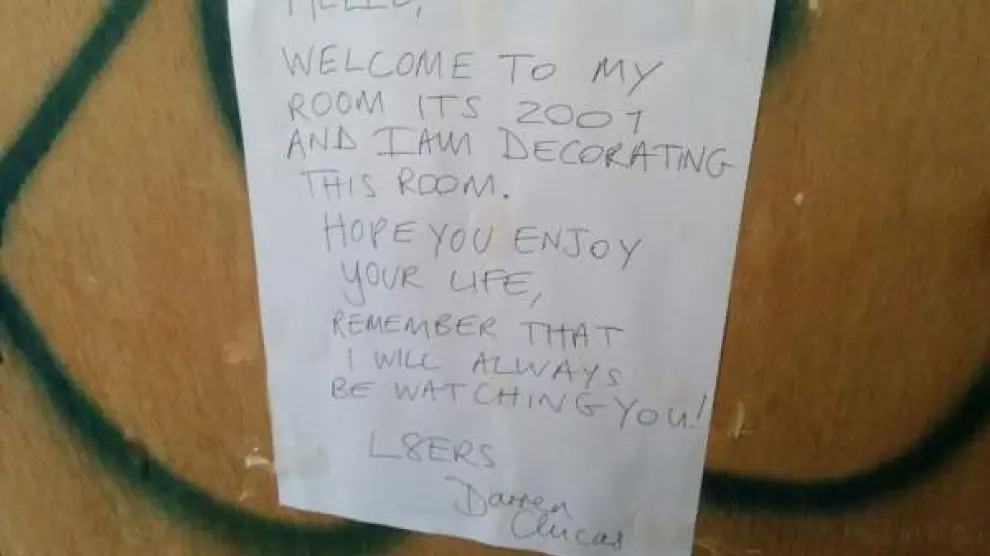 HELLO,
WELCOME TO MY
ROOM ITS 2001
AND I AM DECORATING
THIS ROOM.
HOPE YOU ENJOY
YOUR LIFE,
REMEMBER THAT
I WILL ALWAYS
BE WATCHING YOU!
L8ERS
Darren
Clucas